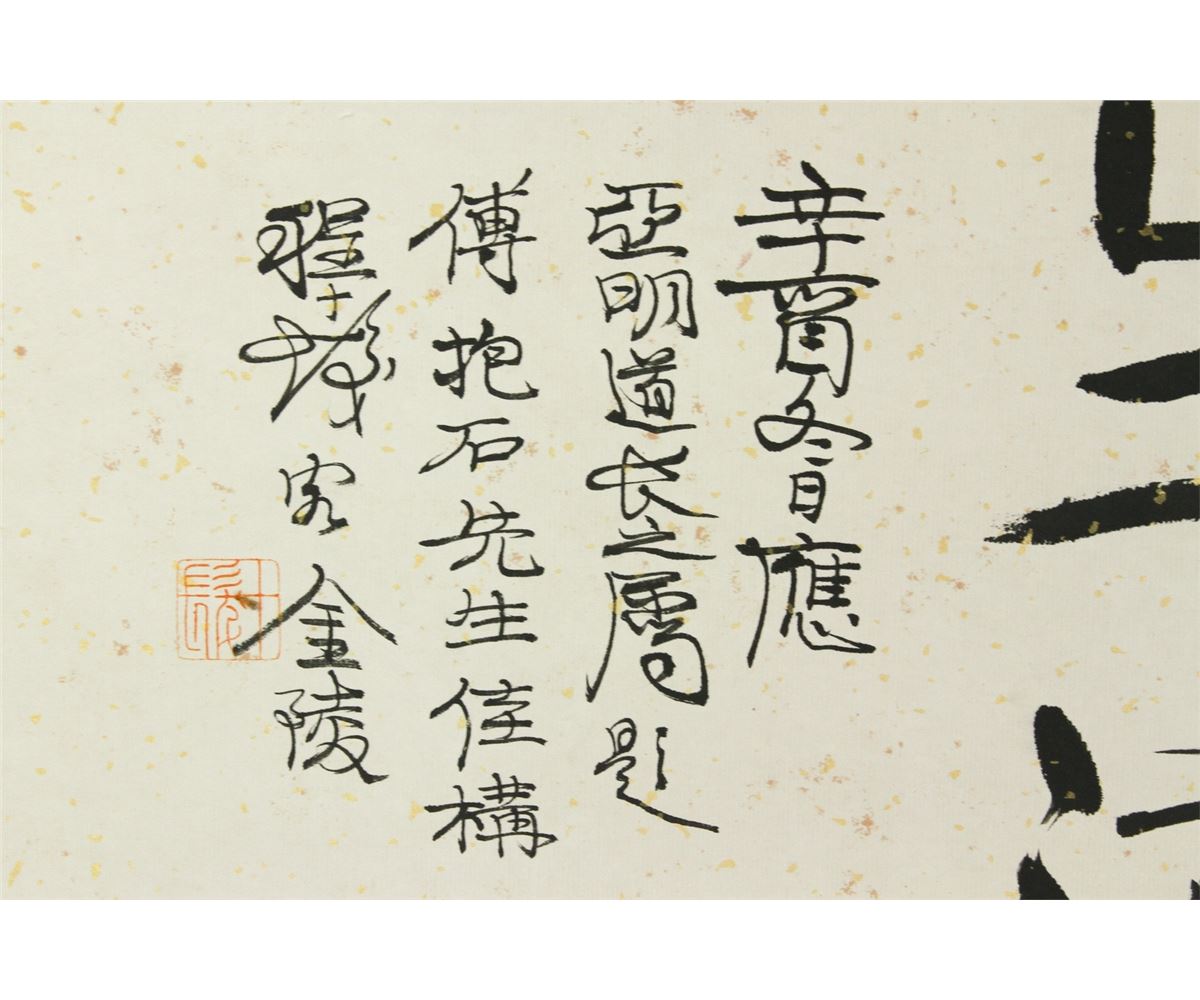 辛酉冬日應
亞明道长之屬題
傅抱石先生佳構
程十髮客金陵
十髮